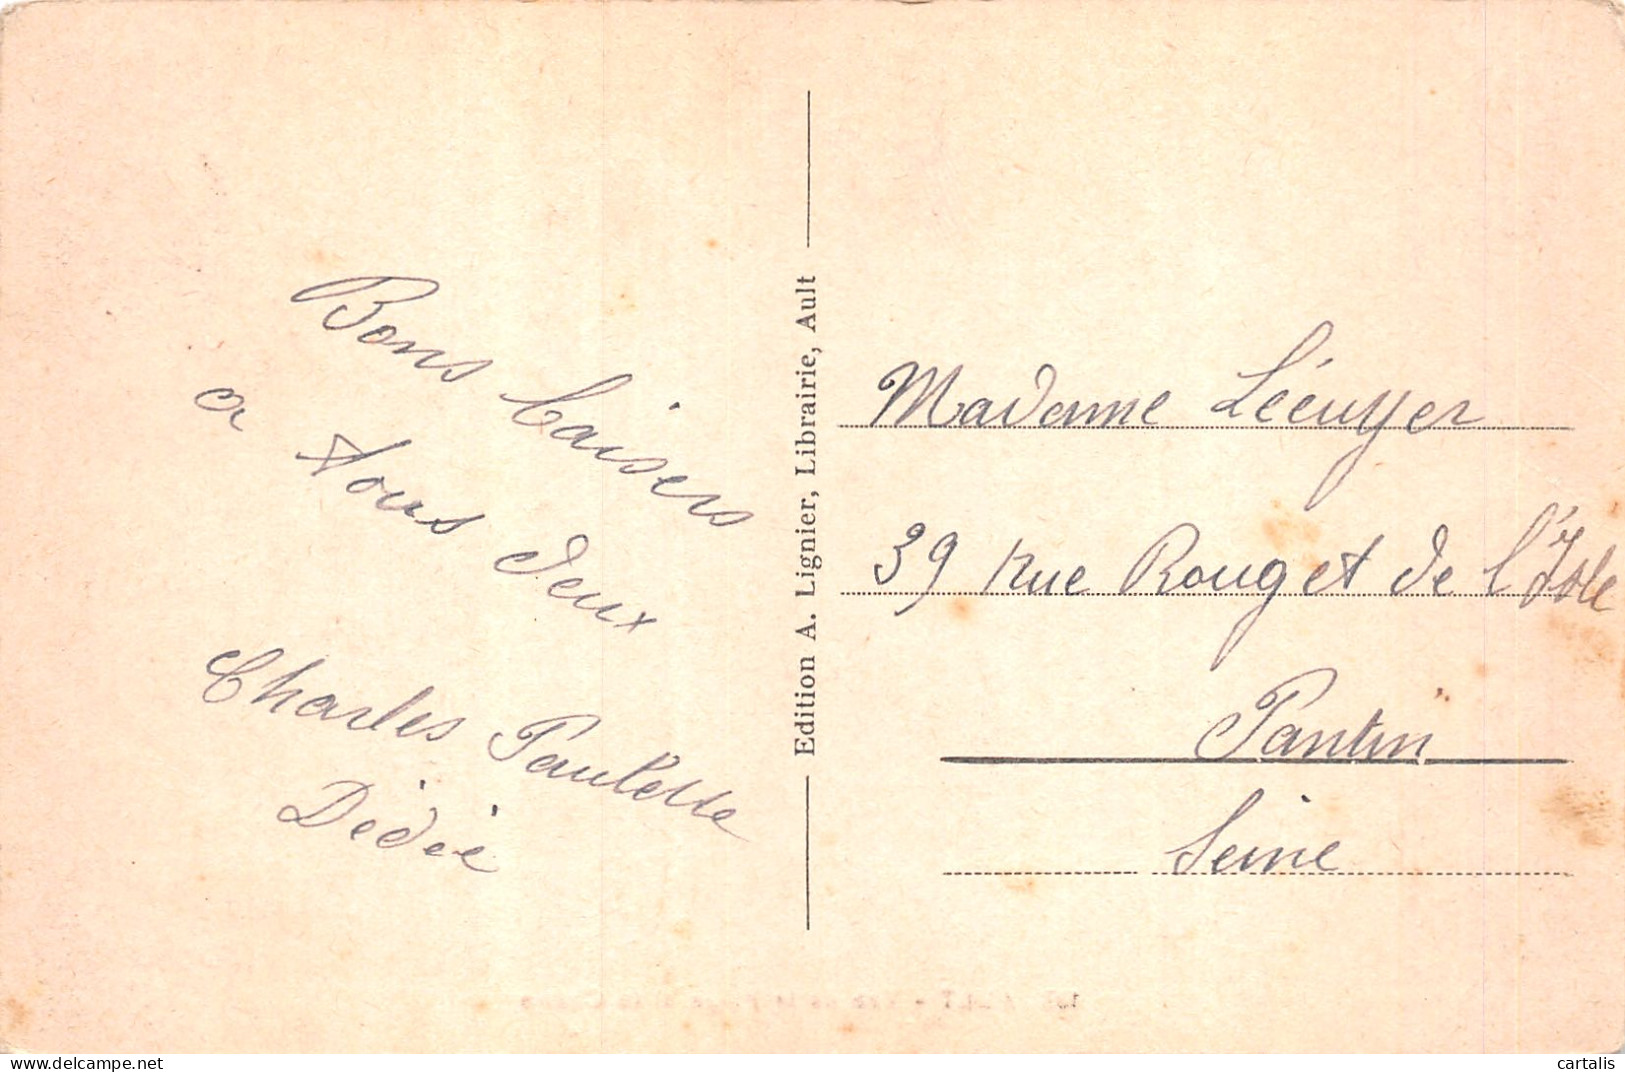 Bons baisers
a tous deux
Charles Paulette
Dédée
Edition A. Lignier, Librairie, Ault
Madame Lécuyer
39 rue Rouget de l'Isle
Pantin
Seine
cartalis